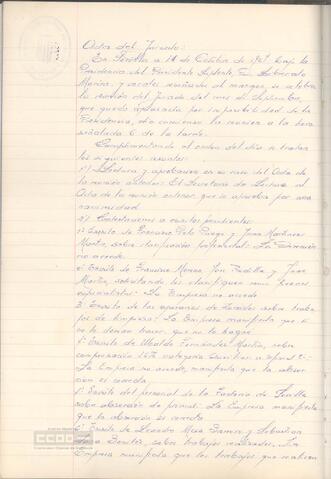 Acta del Jurado:
En Sevilla a 14 de Octubre de 1969, bajo la
Presidencia del Presidente Suplente, D.
y vocales reseñados al margen, se celebra
la reunión del Jurado del mes de Septiembre,
que quedó aplazada por imposibilidad de la
Presidencia, dio comienzo la reunión a la hora
señalada 6 de la tarde.
Cumplimentando el orden del día se tratan
los siguientes asuntos:
1º) Lectura y aprobación en su caso del Acta de
la reunión anterior: El Secretario da lectura al
Acta de la reunión anterior, que es aprobada por una-
nimidad.
2º) Contestaciones a escritos pendientes:
1º Escrito de Francisco y Juan Martínez
sobre clasificación profesional: La Dirección
no accede.
2º Escrito de Francisco José Padilla y Juan
Martín, solicitando les clasifiquen como
especialistas: La Empresa no accede
3º Escrito de los operarios de sobre traba-
jos de limpieza: La Empresa manifiesta que si
no lo desean hacer, que no lo hagan
4º Escrito de Ubaldo Fernández Martín, sobre
compensación categoría
La Empresa no accede, manifiesta que la absor-
ción es correcta.
5º Escrito del personal de la Factoría de Sevilla
sobre absorción de primas: La Empresa manifiesta
que la absorción es correcta
6º Escrito de Leandro y Sebastián
Benítez, sobre trabajos realizados: La
Empresa manifiesta que los trabajos que realizan
CCOO